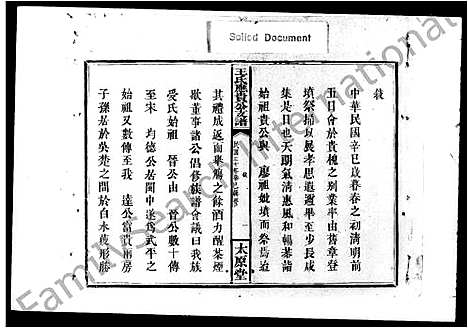 Soiled Document
敘
中華民國辛巳歲暮春之初清明前
五日會於貴槐之别業率由舊章登
墳祭掃以展孝思遐邇畢至少長咸
集是日也天朗氣清惠風和暢恭詣
始祖貴公與 廖祖妣墳而祭焉迨
王氏應貴公支譜
敘
一
太原堂
其禮成返而舉觴之餘酒力醒茶煙
歇董事諸公倡修族譜會議曰我族
受氏始祖 晉公由 晉公數十傳
至宋 均德公若閩中遂為武平之
始祖又數傳至我 達公富貴兩房
子孫若於吳楚之間於白水凌形勝
FamilySearch International